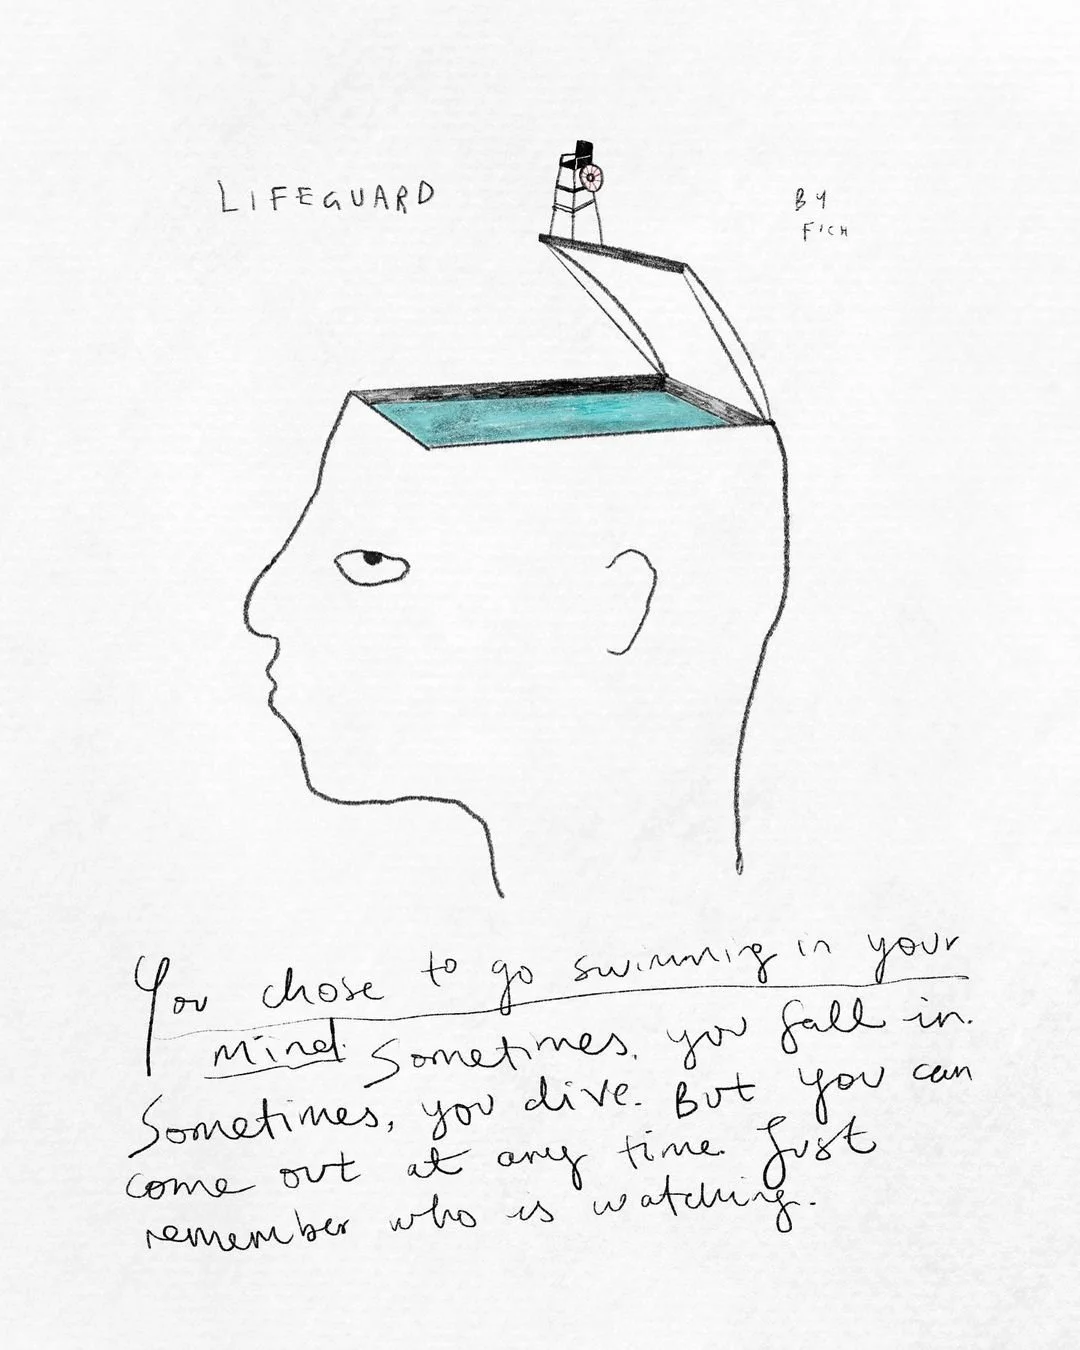 LIFEGUARD
BY
FICH
You chose to go swimming in your
mind. Sometimes, you fall in.
Sometimes, you dive. But you can
come out at any time. Just
remember who is watching.